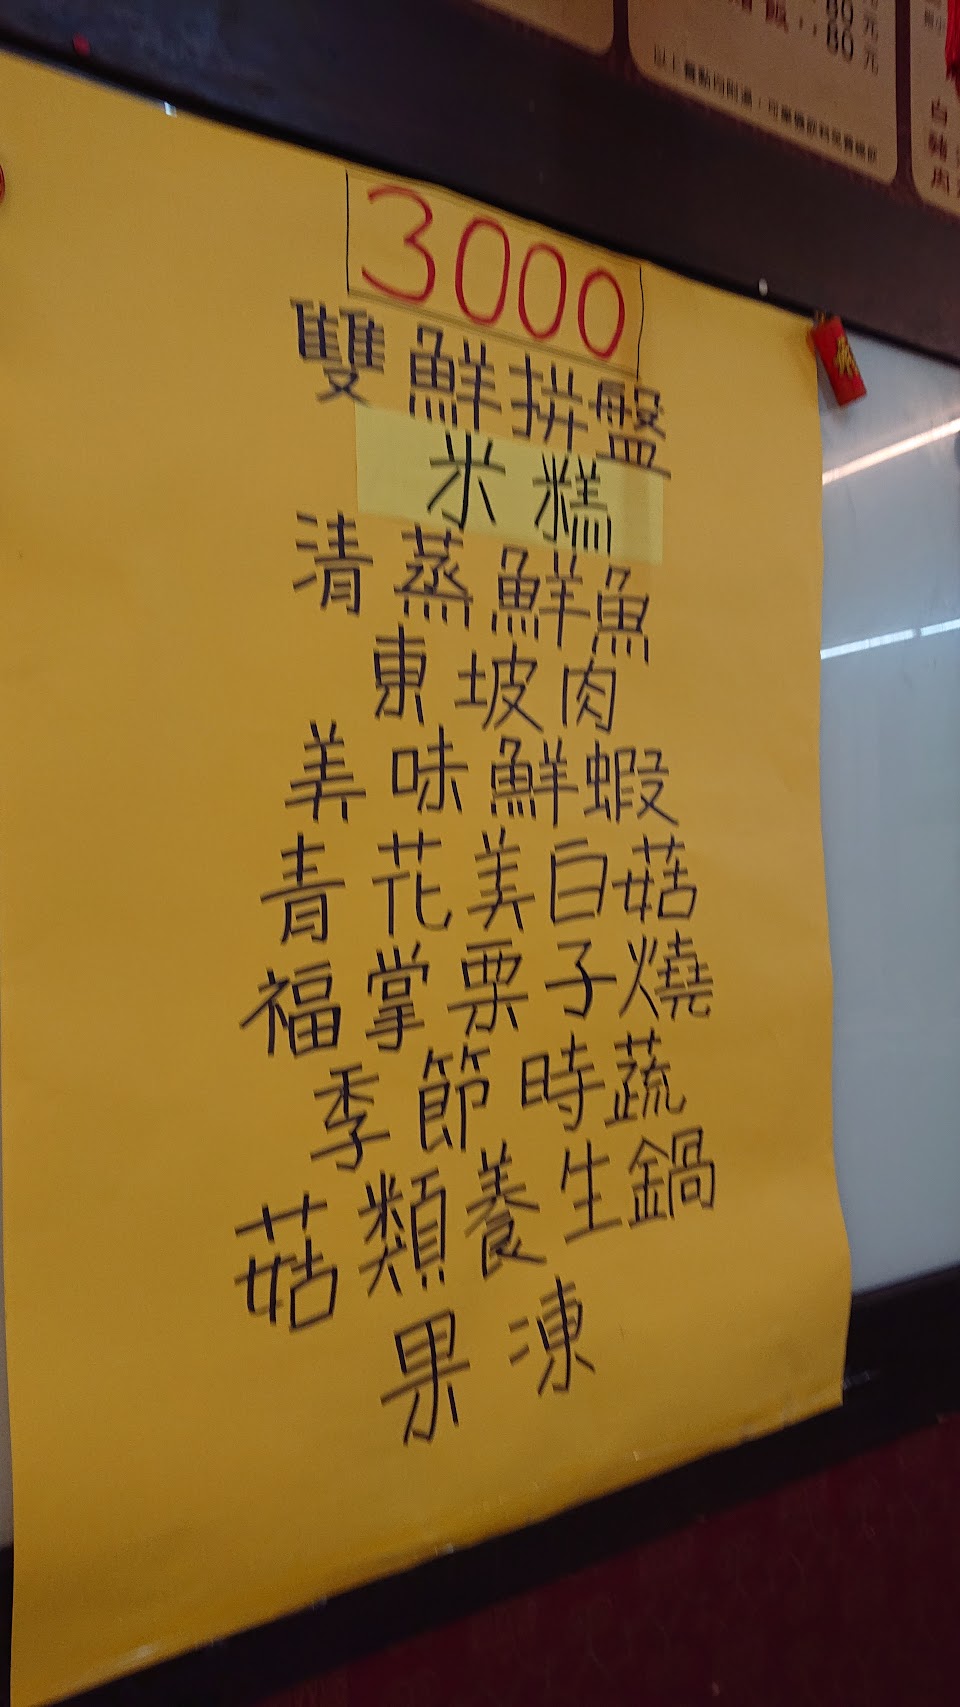 80元
飯‥80元
白
豬
肉
3000
雙鮮拼盤
米糕
清蒸鮮魚
東坡肉
美味鮮蝦
青花美白菇
福掌栗子燒
季節時蔬
菇類養生鍋
果凍